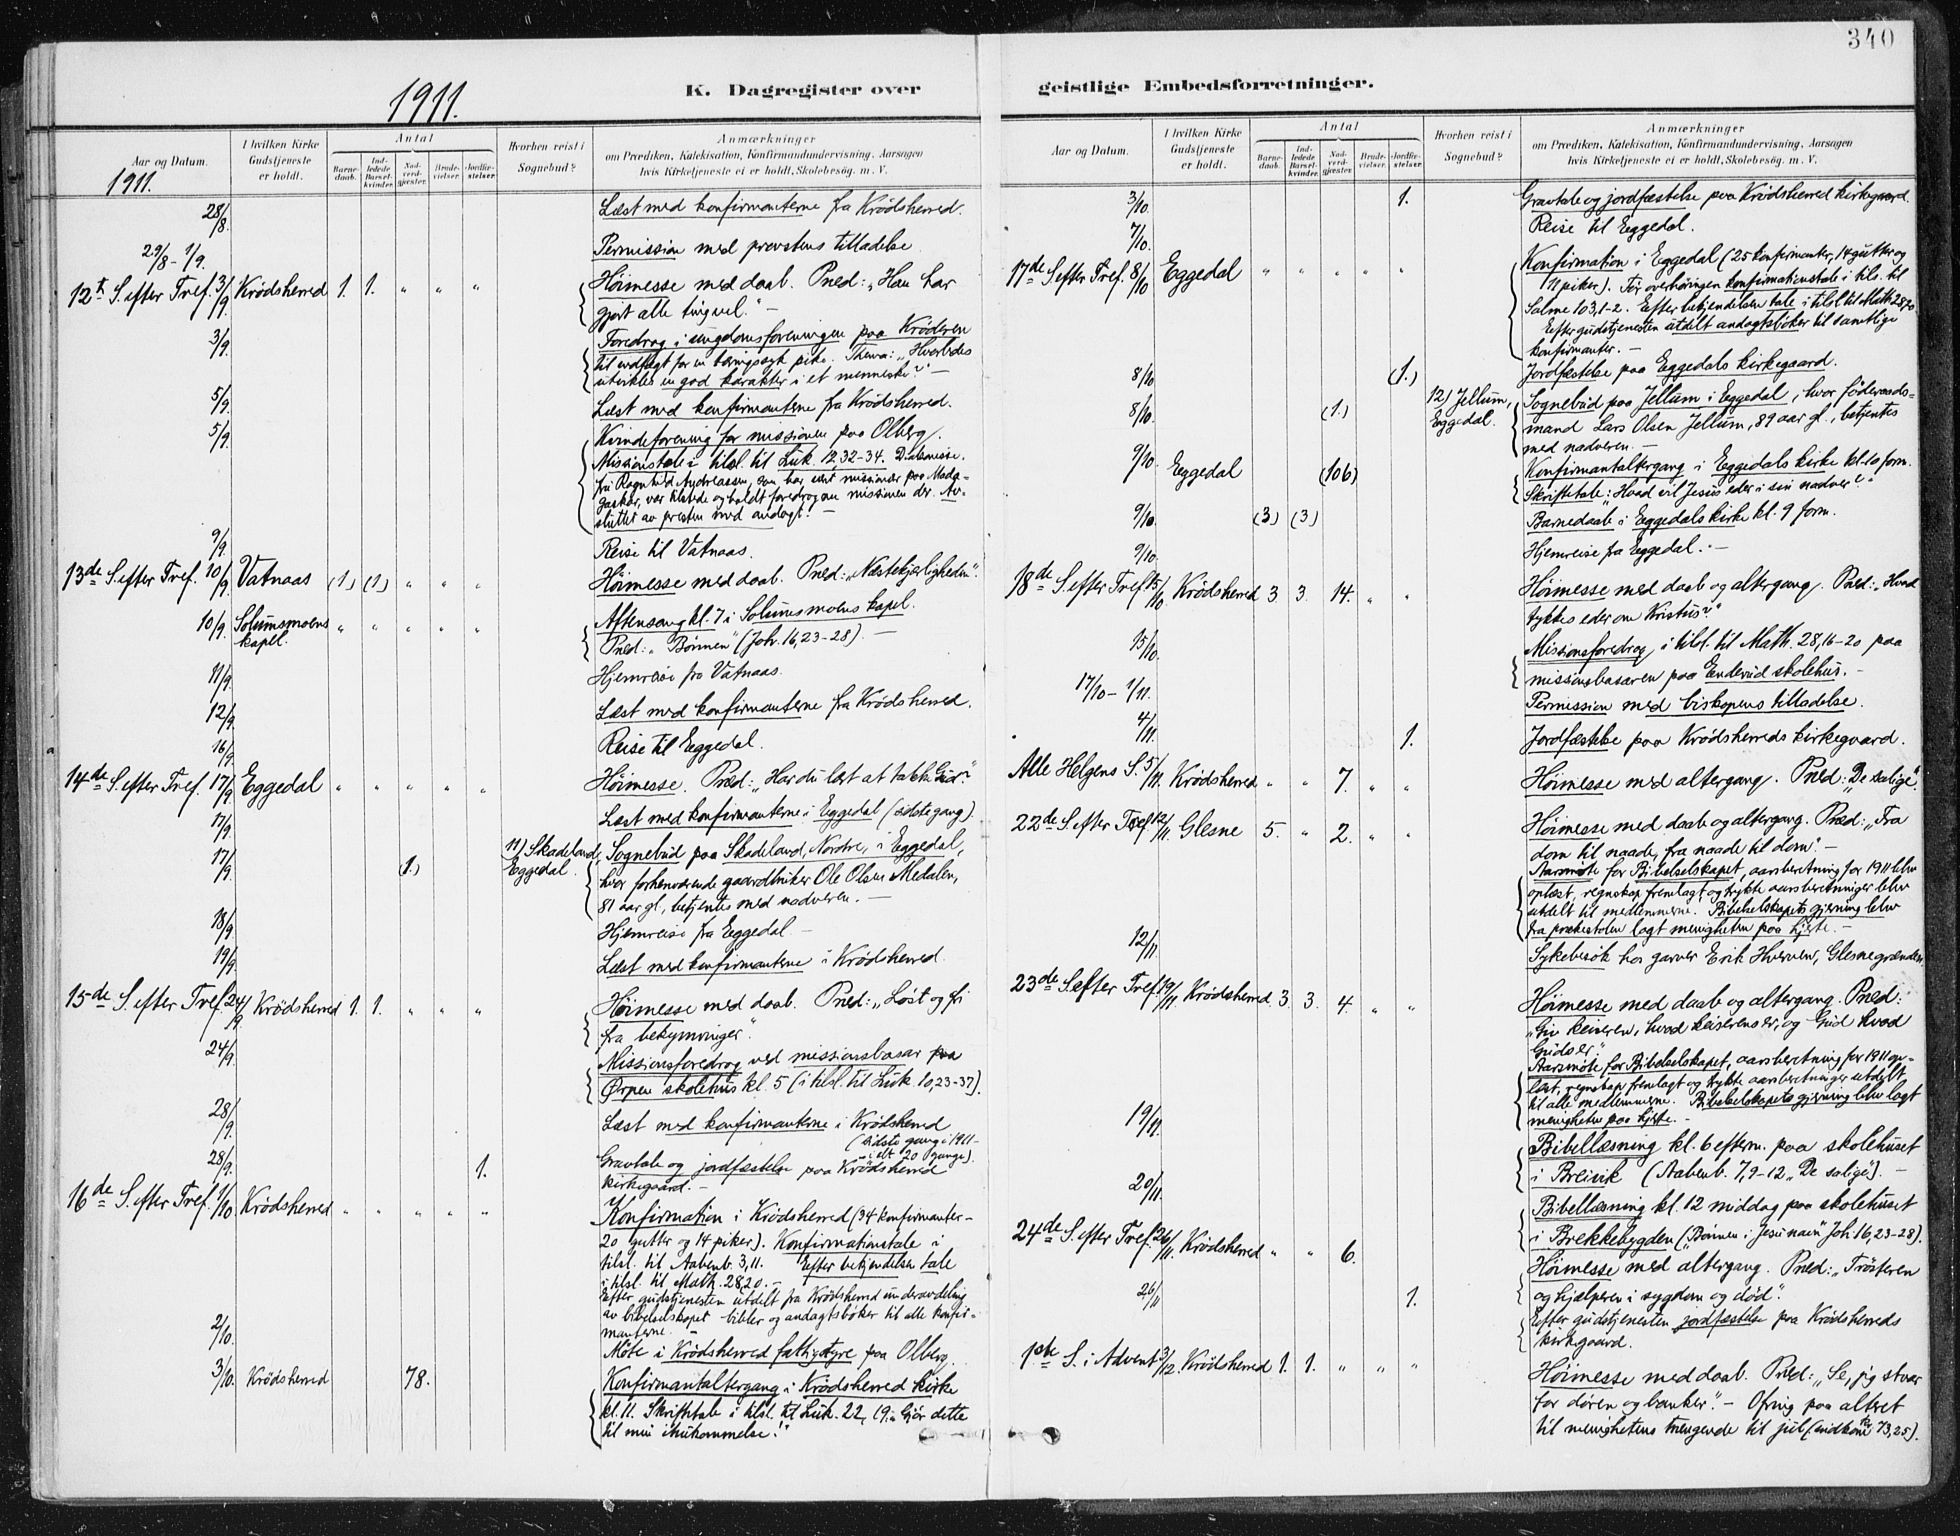 340
1911.
K. Dagregister over
Aar og Datum.
1911.
I hvilken Kirke
Gudstjeneste
er holdt.
Antal
Barne-
daab.
Ind-
ledede
Barsel-
kvinder.
Nad-
verd-
gjester.
Brude-
vielser.
Jordfæ-
stelser.
Hvorhen reist i
Sognebud?
Anmærkninger
om Prædiken, Katekisation, Konfirmandundervisning, Aarsagen
hvis Kirketjeneste ei er holdt, Skolebesøg. m. V.
28/8. Læst med konfirmanterne fra Krødsherred.
29/8 - 1/9. Permission med provstens tilladelse.
12te S. efter Tref. 3/9. Krødsherred 1. 1. " " " Høimesse med daab. Præd: "Han har
gjort alle ting vel." -
3/9. Foredrag i ungdomsforeningen paa Krøderen
til indtægt for en pike. Thema: "Hvorledes
utvikles en god karakter i et menneske?" -
5/9. Læst med konfirmanterne fra Krødsherred.
5/9. Kvindeforening for missionen paa Olberg.
Missionstale i tilsl. til Luk. 12,32-34. Diakonisse.
frk Ragnhild Andreassen, som har været missionær paa Mada-
gaskar, var tilstede og holdt foredrag om missionen der. Av-
sluttet av presten med andagt. -
9/9. Reise til Vatnaas.
13de S. efter Tref. 10/9. Vatnaas (1) (1) " " " Høimesse med daab. Præd: "Næstekjærligheden".
10/9. Solumsmoens
kapel. " " " " " Aftensang kl. 7 i Solumsmoens kapel.
Præd: "Bønnen" (Joh. 16,23-28). -
11/9. Hjemreise fra Vatnaas.
12/9. Læst med konfirmanterne fra Krødsherred.
16/9. Reise til Eggedal.
14de S. efter Tref. 17/9. Eggedal " " " " " Høimesse. Præd: "Har du lært at takke Gud?"
17/9. Læst med konfirmanterne i Eggedal (sidste gang).
17/9. (1.) 11) Skadeland,
Eggedal. Sognebud paa Skadeland, Nordre, i Eggedal,
hvor forhenværende gaardbruker Ole Olsen Medalen,
81 aar gl., betjentes med nadveren. -
18/9. Hjemreise fra Eggedal -
19/9. Læst med konfirmanterne i Krødsherred.
15de S. efter Tref. 24/9. Krødsherred 1. 1. " " " Høimesse med daab. Præd: "Løst og fri
fra bekymringer".
24/9. Missionsforedrag ved missionsbasar paa
Ørpen skolehus kl. 5 (i tilsl. til Luk 10,23-37).
28/9. Læst med konfirmanterne i Krødsherred
(sidste gang i 1911 -
- i alt 20 gange).
28/9. 1. Gravtale og jordfæstelse paa Krødsherred
kirkegaard. -
16de S. efter Tref. 1/10. Krødsherred " " " " " Konfirmation i Krødsherred (34 konfirmanter -
20 gutter og 14 piker). Konfirmationstale i
tilsl. til Aabenb. 3,11. Efter bekjendelsen tale
i tilsl. til Math. 28,20. -
Efter gudstjenesten utdelt fra Krødsherred underavdeling
av bibelselskapet bibler og andagtsbøker til alle konfir-
manterne. -
2/10. Møte i Krødsherred fattigstyre paa Olberg.
3/10. Krødsherred 78. Konfirmantaltergang i Krødsherred kirke
kl. 11. Skriftetale i tilsl. til Luk. 22, 19: "Gjør dette
til min ihukommelse!"
geistlige Embedsforretninger.
Aar og Datum.
I hvilken Kirke
Gudstjeneste
er holdt.
Antal
Barne-
daab.
Ind-
ledede
Barsel-
kvinder.
Nad-
verd-
gjester.
Brude-
vielser.
Jordfæ-
stelser.
Hvorhen reist i
Sognebud?
Anmærkninger
om Prædiken, Katekisation, Konfirmandundervisning, Aarsagen
hvis Kirketjeneste ei er holdt, Skolebesøg. m. V.
3/10. 1. Gravtale og jordfæstelse paa Krødsherred kirkegaard.
7/10. Reise til Eggedal.
17de S. efter Tref. 8/10 Eggedal " " " " " Konfirmation i Eggedal (25 konfirmanter, 14 gutter og
11 piker). Før overhøringen konfirmationstale i tilsl. til
Salme 103,1-2. Efter bekjendelsen tale i tilsl. til Math. 28,20
Efter gudstjenesten utdelt andagtsbøker til samtlige
konfirmanter. -
8/10 (1.) Jordfæstelse paa Eggedals kirkegaard.
8/10. (1.) 12) Jellum,
Eggedal. Sognebud paa Jellum i Eggedal, hvor føderaads-
mand Lars Olsen Jellum, 89 aar gl., betjentes
med nadveren. -
9/10. Eggedal (106) Konfirmantaltergang i Eggedals kirke kl. 10 form.
Skriftetale: "Hvad vil Jesus eder i sin nadver?"
9/10. (3) (3) Barnedaab i Eggedals kirke kl. 9 form.
9/10. Hjemreise fra Eggedal. -
18de S. efter Tref. 15/10. Krødsherred 3. 3. 14. " " Høimesse med daab og altergang. Præd: "Hvad
tykkes eder om Kristus?"
15/10. Missionsforedrag i tilsl. til Math. 28,16-20 paa
missionsbasaren paa Enderud skolehus. -
17/10 - 1/11. Permission med biskopens tilladelse.
4/11. 1. Jordfæstelse paa Krødsherreds kirkegaard.
Alle Helgens S. 5/11. Krødsherred " " 7. " " Høimesse med altergang. Præd: "De salige".
22de S. efter Tref. 12/11. Glesne 5. " 2. " " Høimesse med daab og altergang. Præd: "Fra
dom til naade, fra naade til dom". -
Aarsmøte for Bibelselskapet, aarsberetning for 1911 blev
oplæst, regnskap fremlagt og trykte aarsberetninger blev
utdelt til medlemmerne. Bibelselskapets gjerning blev
fra prækestolen lagt menigheten paa hjerte. -
12/11. Sykebesøk hos garver Erik Hverven, Glesnegrænden.
23de S. efter Tref. 19/11. Krødsherred. 3. 3. 4. " " Høimesse med daab og altergang. Præd:
"Giv keiseren, hvad keiserens er, og Gud hvad
Guds er."
Aarsmøte for Bibelselskapet, aarsberetning for 1911 op-
læst, regnskap fremlagt og trykte aarsberetninger utdelt
til alle medlemmerne. Bibelselskapets gjerning blev lagt
menigheten paa hjerte. -
19/11. Bibellæsning kl. 6 efterm. paa skolehuset
i Breivik (Aabenb. 7,9-12 "De salige"). -
20/11. Bibellæsning kl. 12 middag paa skolehuset
i Brekkebygden ("Bønnen i Jesu navn" Joh. 16,23-28).
24de S. efter Tref. 26/11. Krødsherred " " 6. Høimesse med altergang. Præd: "Trøsteren
og hjælperen i sygdom og død".
26/11 1. Efter gudstjenesten jordfæstelse paa Krødsherreds
kirkegaard.
1ste S. i Advent 3/12. Krødsherred 1. 1. " " " Høimesse med daab. Præd: "Se, jeg staar
for døren og banker". - Ofring paa altret
til menighetens trængende til jul (indkom kr 73,25).